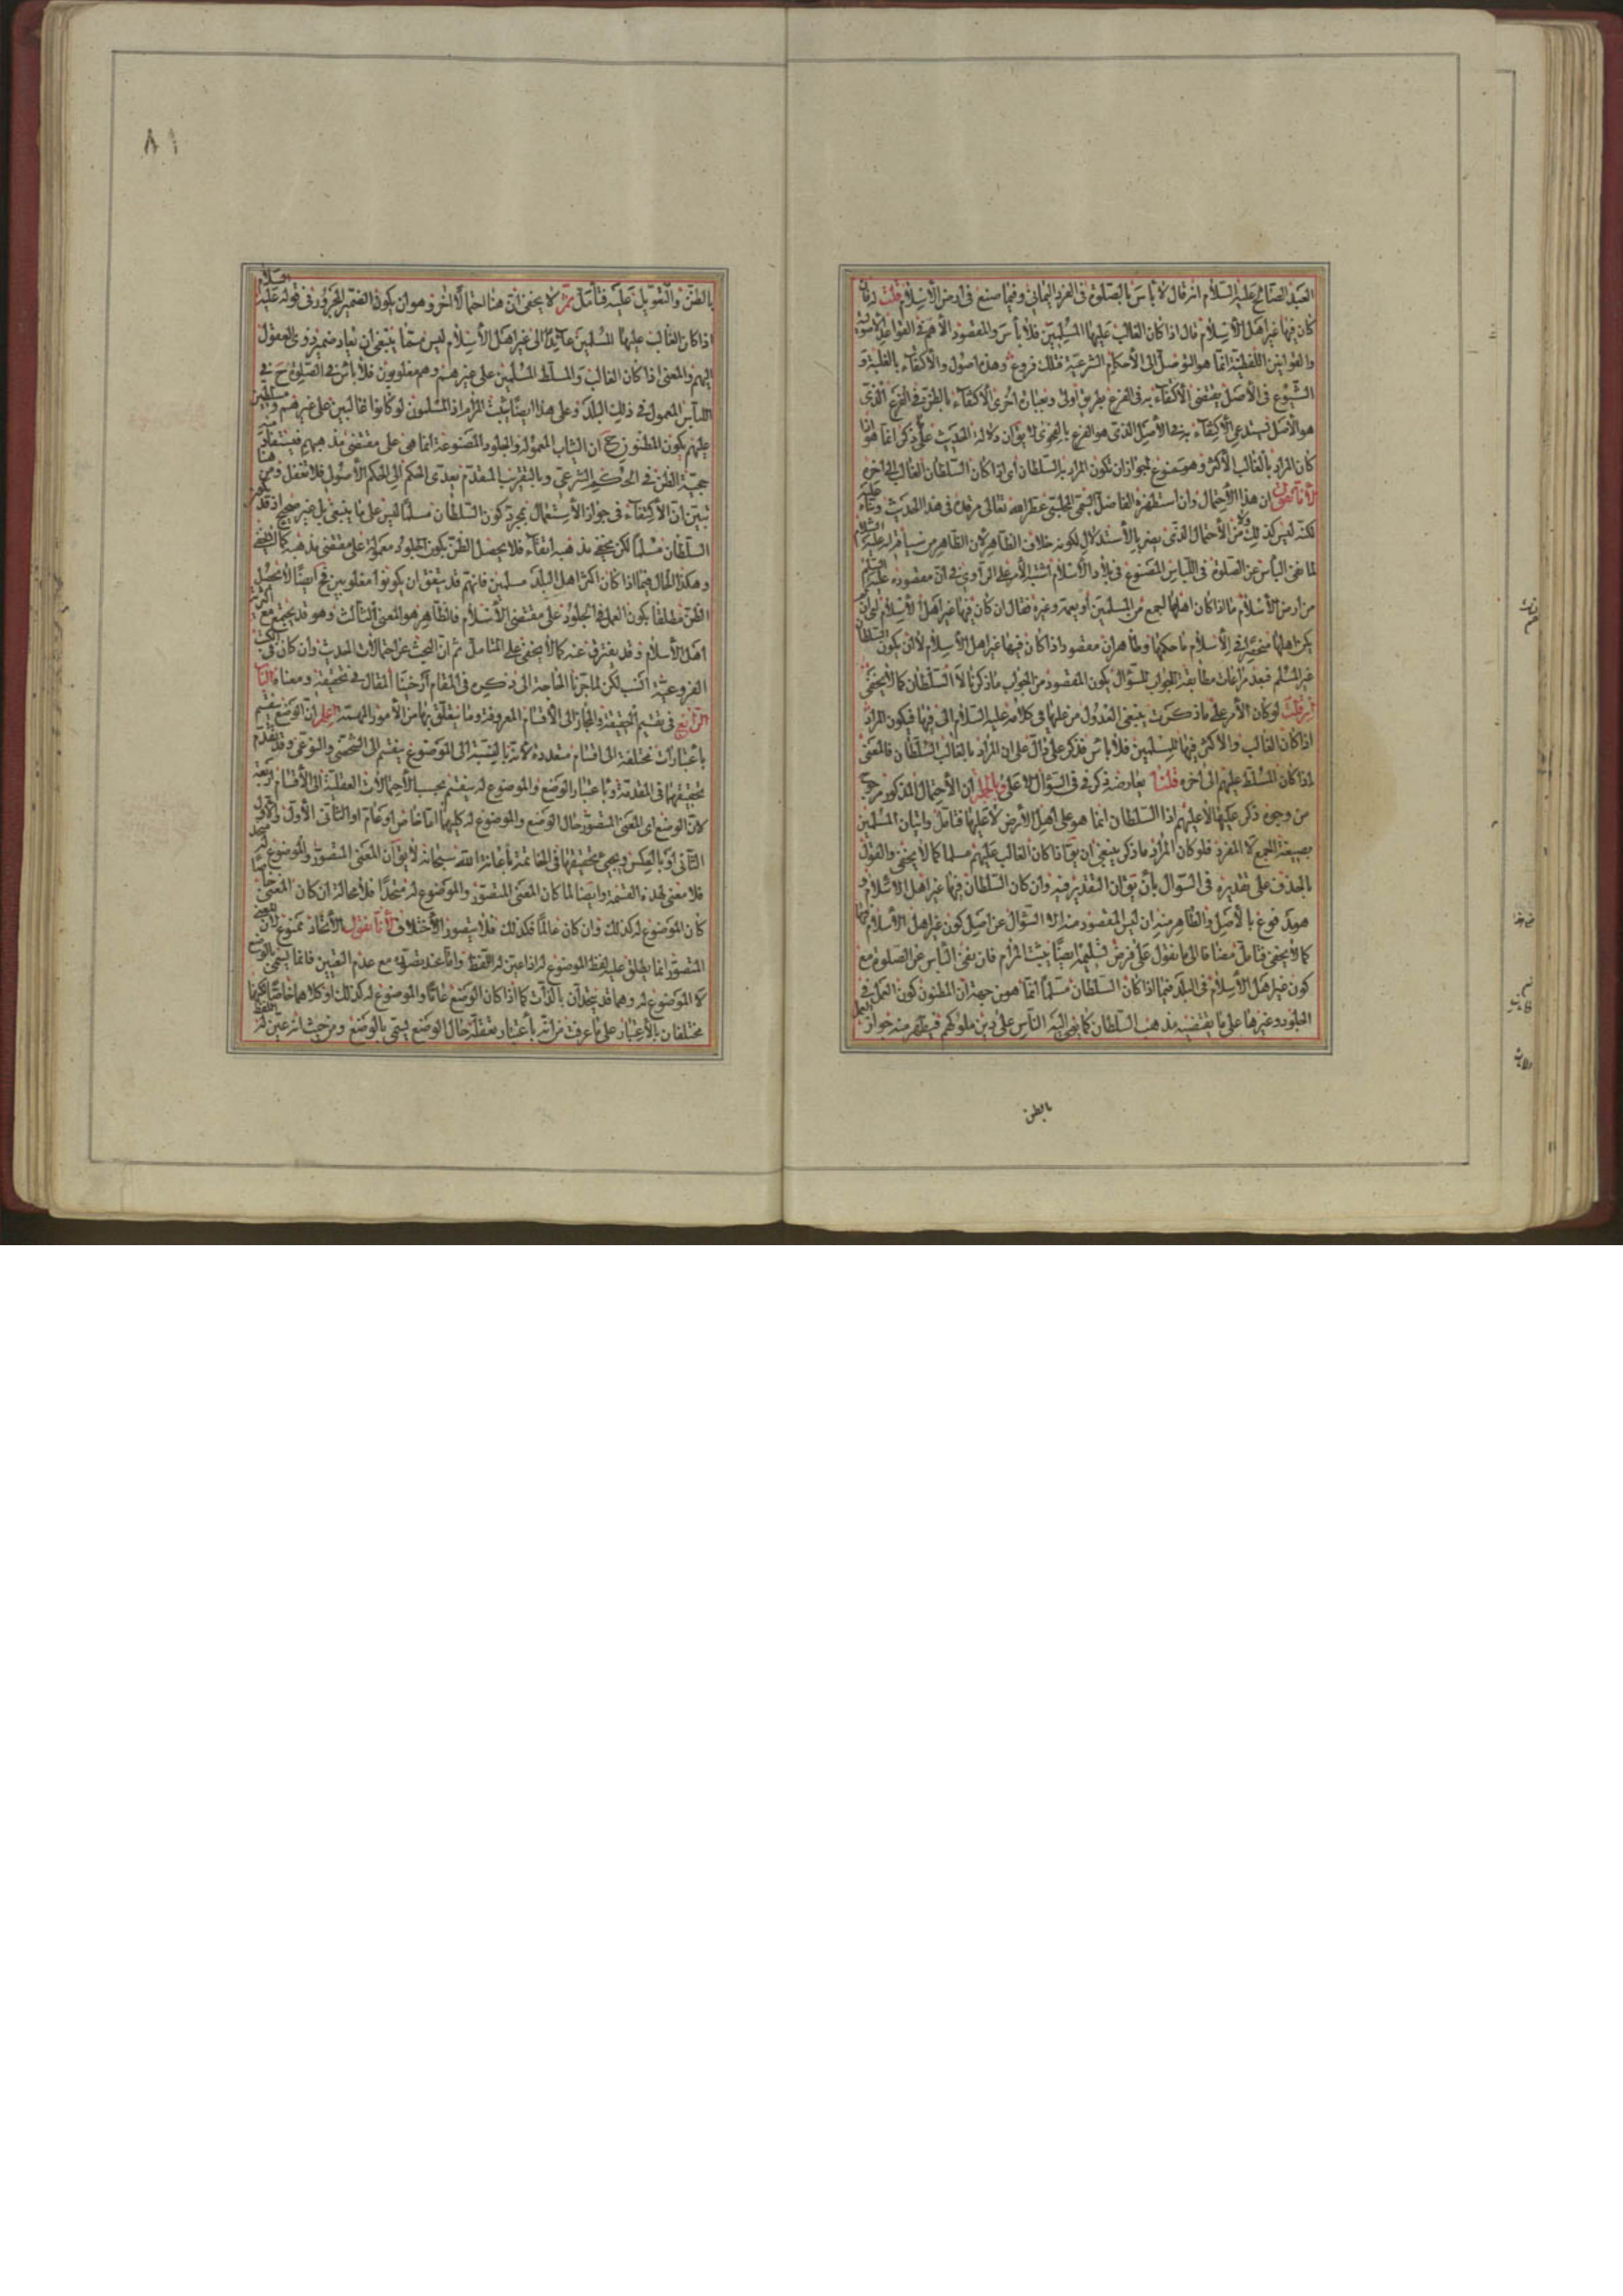 العبد الصالح عليه السلام انه قال لا باس بالصلوة فى الفرو اليمانى وفيما صنع فى ارض الاسلام قلت له فان
كان فيها غير اهل الاسلام قال اذا كان الغالب عليها المسلمين فلا بأس والمقصود الاهم فى القواعد الاصولية
والقوانين اللفظية انما هو التوصل الى الاحكام الشرعية فتلك فروع وهذه اصول والاكتفاء بالغلبة و
الشيوع فى الاصل يقتضى الاكتفاء به فى الفرع بطريق اولى وبعبارة اخرى الاكتفاء بالظن فى الفرع الذى
هو الاصل يستدعى الاكتفاء به فى الاصل الذى هو الفرع بالفحوى لا يق ان دلالة الحديث على ذكر انما هو اذا
كان المراد بالغالب الاكثر وهو ممنوع لجواز ان يكون المراد به السلطان اى اذا كان السلطان الغالب الى اخره
لانا نقول ان هذا الاحتمال وان استظهره الفاضل السمى المجلسى عطر الله تعالى مرقده فى هذا الحديث
لكنه ليس كذلك من الاحتمال الذى يضر بالاستدلال لكونه خلاف الظاهر لان الظاهر من سياقه انه عليه السلام
لما نفى البأس عن الصلوة فى اللباس المصنوع فى بلاد الاسلام اشتبه الامر على الراوى فى ان مقصوده عليه السلام
من ارض الاسلام ما اذا كان اهلها اجمع من المسلمين او يعمه وغيره فقال ان كان فيها غير اهل الاسلام اى ان
يكن اهلها منحصرا فى الاسلام ما حكمها وظاهر ان مقصوده اذا كان فيها غير اهل الاسلام لا ان يكون السلطان
غير المسلم فبعد مراعات مطابقة الجواب للسؤال يكون المقصود من الجواب ما ذكرنا لا السلطان كما لا يخفى
ان قلت لو كان الامر على ما ذكرت ينبغى العدول من عليها فى كلامه عليه السلام الى فيها فيكون المراد
اذا كان الغالب والاكثر فيها المسلمين فلا باس فذكر على دال على ان المراد بالغالب السلطان فالمعنى
اذا كان المسلط عليهم الى اخره قلنا يعارضه ذكر فى فى السؤال لا على وبالجملة ان الاحتمال المذكور مرجوح
من وجوه ذكر عليها لا عليهم اذ السلطان انما هو على اهل الارض لا عليها فتامل واتيان المسلمين
بصيغة الجمع لا المفرد فلو كان المراد ما ذكر ينبغى ان يق اذا كان الغالب عليهم مسلما كما لا يخفى والقول
بالحذف على تقديره فى السؤال بأن يق ان التقدير فيه وان كان السلطان فيها غير اهل الاسلام و
هو مدفوع بالاصل والظاهر منه ان ليس المقصود منه ذلك السؤال عن اصل كون غير اهل الاسلام فيها
كما لا يخفى فتامل مضافا الى ما نقول على فرض تسليمه ايضا يثبت المرام فان نفى الباس عن الصلوة مع
كون غير اهل الاسلام فى البلد فيما اذا كان السلطان مسلما انما هو من جهة ان المظنون كون العمل فى
الجلود وغيرها على ما يقتضيه مذهب السلطان كما يومى اليه الناس على دين ملوكهم فيظهر منه جواز العمل
بالظن
٨١
بالظن والتعويل عليه فتأمل ثم لا يخفى ان هنا احتمالا اخر وهو ان يكون الضمير المجرور فى قوله عليه السلام
اذا كان الغالب عليها المسلمين عائدا الى غير اهل الاسلام ليس مما ينبغى ان يعاد ضمير ذوى العقول
اليهم والمعنى اذا كان الغالب والمسلط المسلمين على غيرهم وهم مغلوبون فلا بأس فى الصلوة ح فى
اللباس المعمول فى ذلك البلد وعلى هذا ايضا يثبت المرام اذ المسلمون لو كانوا غالبين على غيرهم ومسلطين
عليهم يكون المظنون ح ان الثياب المعمولة والجلود المصنوعة انما هى على مقتضى مذهبهم فيستفاد منه
حجية الظن فى الحكم الشرعى وبالتقريب المتقدم يعدى الحكم الى الحكم الاصولى فلا تغفل ومن هنا
تبين ان الاكتفاء فى جواز الاستعمال بمجرد كون السلطان مسلما ليس على ما ينبغى بل غير صحيح اذ قد يكون
السلطان مسلما لكن يخفى مذهبه اتقاء فلا يحصل الظن بكون الجلود معمولة على مقتضى مذهبه كما لا يخفى
وهكذا الحال فيما اذا كان اكثر اهل البلد مسلمين فانهم قد يتفق ان يكونوا مغلوبين فح ايضا لا يحصل
الظن مطلقا بكون العمل فى الجلود على مقتضى الاسلام فالظاهر هو المعنى الثالث وهو قد يجتمع مع اكثرية
اهل الاسلام وقد يفترق عنه كما لا يخفى على المتامل ثم ان البحث عن احتمالات الحديث وان كان فى الكتب
الفروعية انسب لكن لما جرنا الحاجة الى ذكره فى المقام ارخينا المقال فى تحقيقه ومعناه الباب
الرابع فى تقسيم الحقيقة والمجاز الى الاقسام المعروفة وما يتعلق بها من الامور المهمة اعلم ان الوضع ينقسم
باعتبارات مختلفة الى اقسام متعددة لانه بالنسبة الى الموضوع ينقسم الى الشخصى والنوعى وقد تقدم
تحقيقهما فى المقدمة وباعتبار الوضع والموضوع له ينقسم بحسب الاحتمالات العقلية الى الاقسام اربعة
لان الوضع اى المعنى المتصور حال الوضع والموضوع له كليهما اما خاص او عام او الثانى الاول والاول
الثانى او بالعكس ويجىء تحقيقها فى الخاتمة باعانة الله سبحانه لا يق ان المعنى المتصور والموضوع له متحد
فلا معنى لهذه القسمة وايضا لما كان المعنى المتصور والموضوع له متحدا فلا محالة ان كان المعنى خاصا
كان الموضوع له كذلك وان كان عاما فكذلك فلا يتصور الاختلاف لانا نقول الاتحاد ممنوع لان المعنى
المتصور انما يطلق عليه لفظ الموضوع له اذا عين له اللفظ واما عند تصوره مع عدم التعيين فانما يسمى بالوضع
لا الموضوع له وهما قد يتحدان بالذات كما اذا كان الوضع عاما والموضوع له كذلك او كلاهما خاصا لكنهما
مختلفان بالاعتبار على ما عرفت من انه باعتبار تعقله حال الوضع يسمى بالوضع ومن حيث انه عين له اللفظ